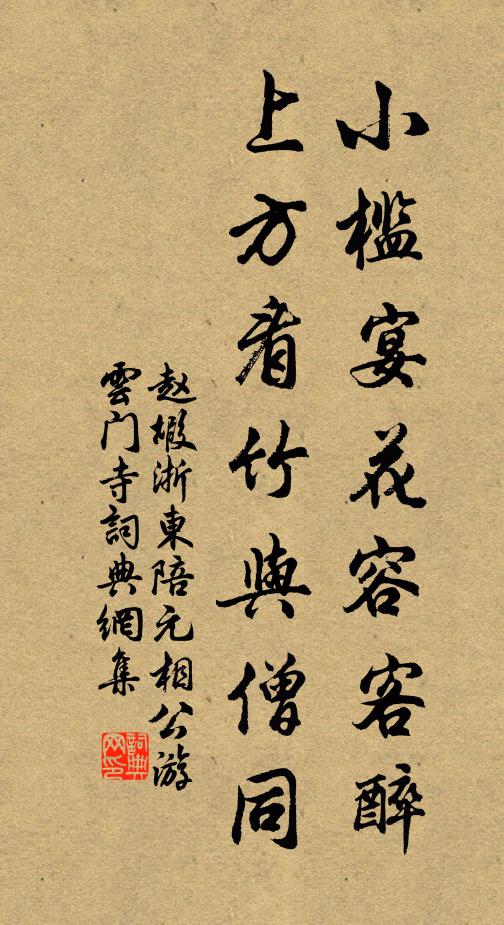 小檻宴花容客醉
上方看竹與僧同
赵椴浙東陪元相公游
雲门寺詞典網集
詞典
网印